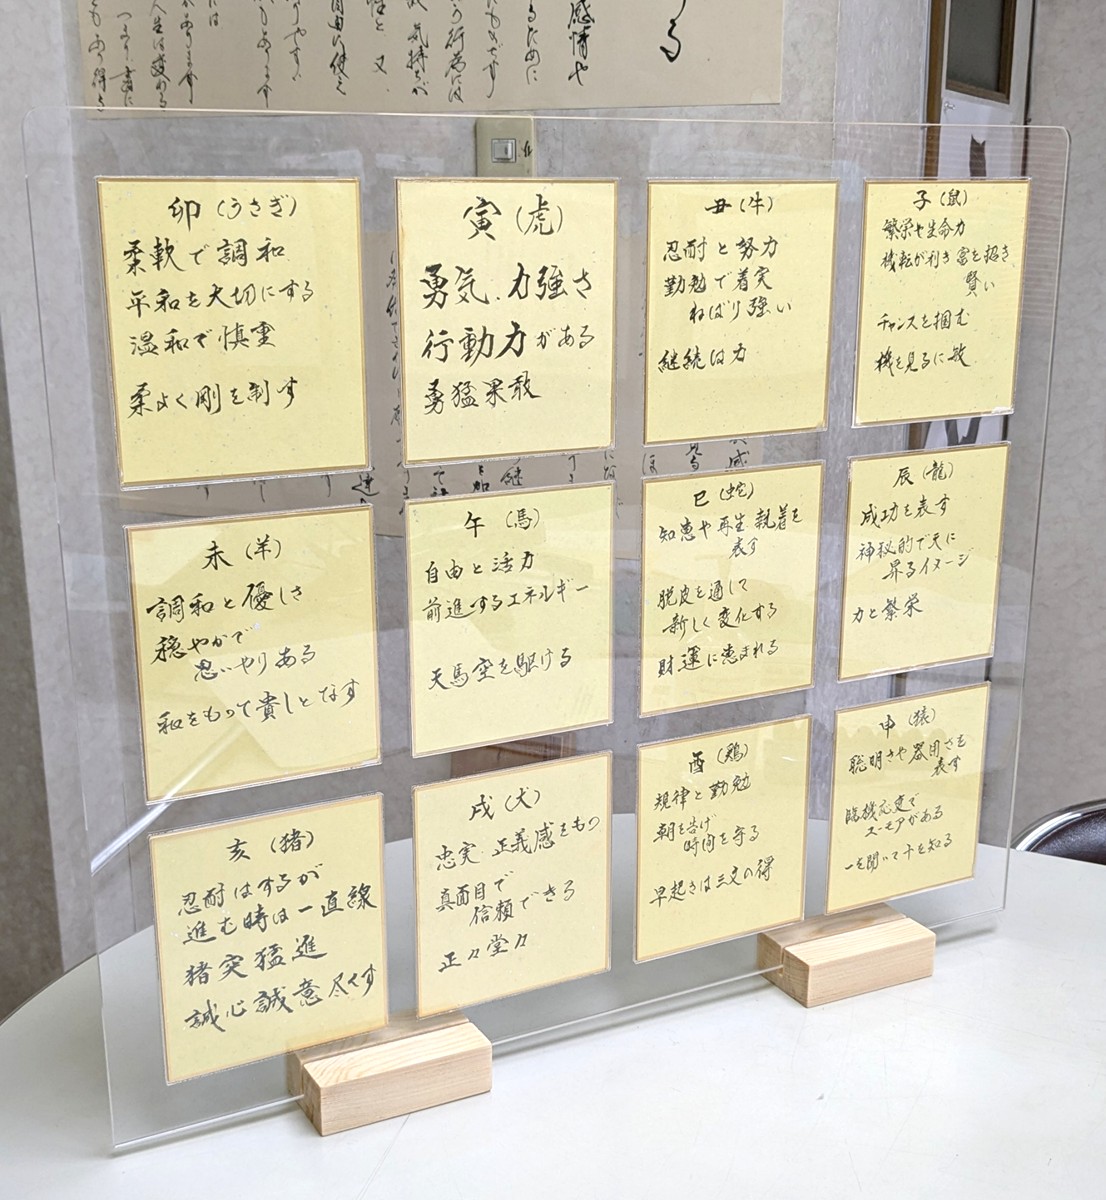 る
感情や
るために
子(鼠)
繁栄や生命力
機転が利き富を招き
賢い
チャンスを掴む
機を見るに敏
丑(牛)
忍耐と努力
勤勉で着実
ねばり強い
継続は力
寅(虎)
勇気.力強さ
行動力がある
勇猛果敢
卯(うさぎ)
柔軟で調和
平和を大切にする
温和で慎重
柔よく剛を制す
辰(龍)
成功を表す
神秘的で天に
昇るイメージ
力と繁栄
巳(蛇)
知恵や再生 執着を
表す
脱皮を通して
新しく変化する
財運に恵まれる
午(馬)
自由と活力
前進するエネルギー
天馬空を駆ける
未(羊)
調和と優しさ
穏やかで
思いやりある
和をもって貴しとなす
申(猿)
聡明さや器用さを
表す
臨機応変で
ユーモアがある
一を聞いて十を知る
酉(鶏)
規律と勤勉
朝を告げ
時間を守る
早起きは三文の得
戌(犬)
忠実.正義感をもつ
真面目で
信頼できる
正々堂々
亥(猪)
忍耐はするが
進む時は一直線
猪突猛進
誠心誠意尽くす